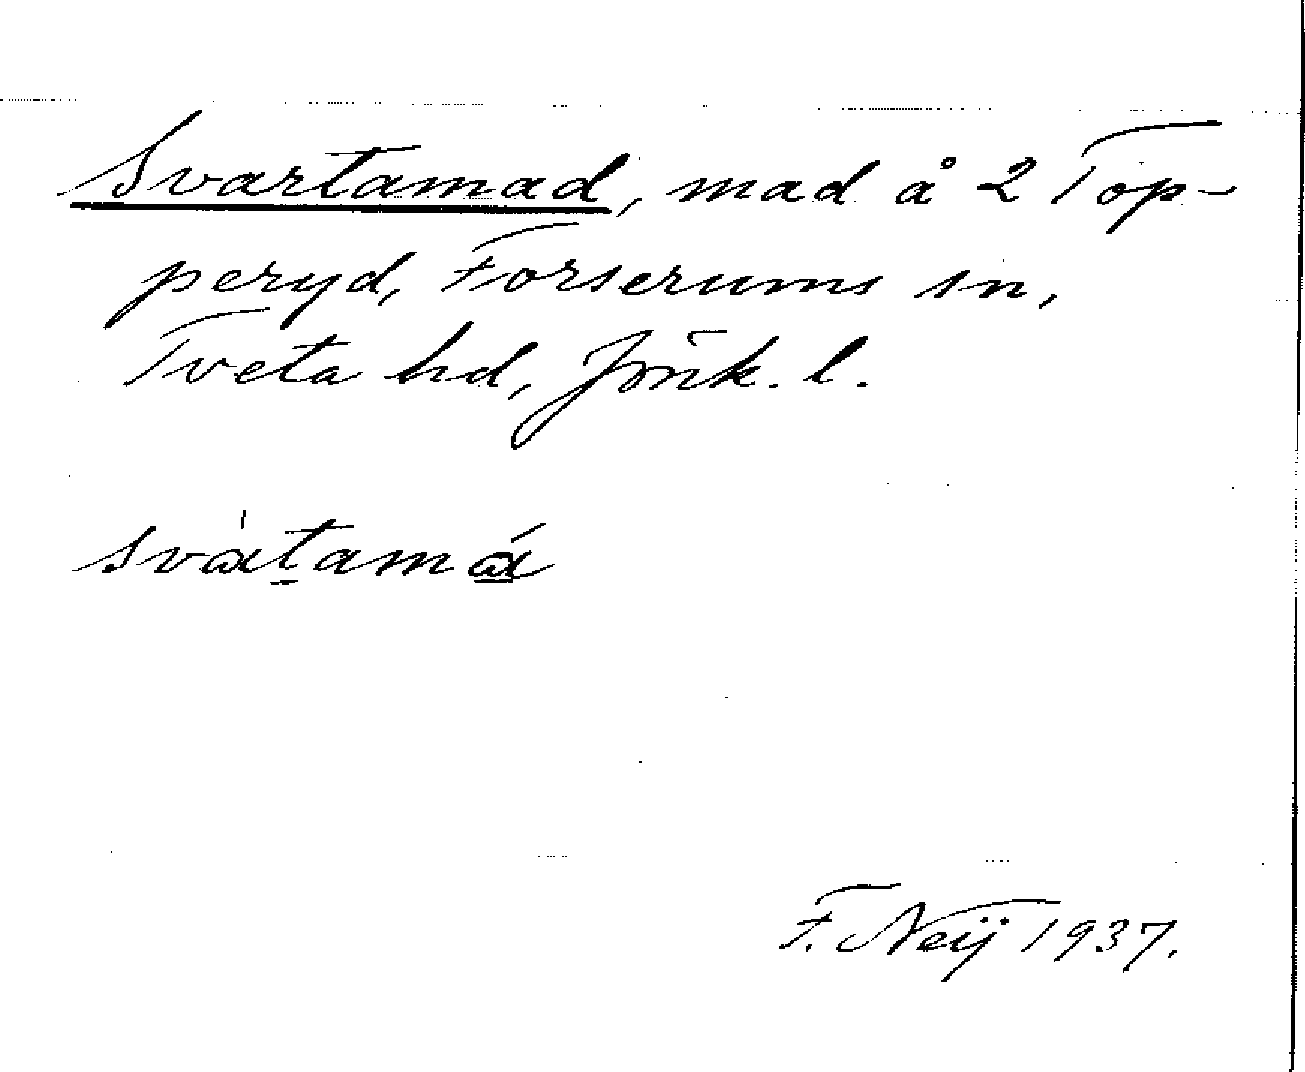 Svartamad, mad å 2 Top-
peryd, Forserums sn,
Tveta hd, Jönk. l.
svàtamá
F. Neij 1937.